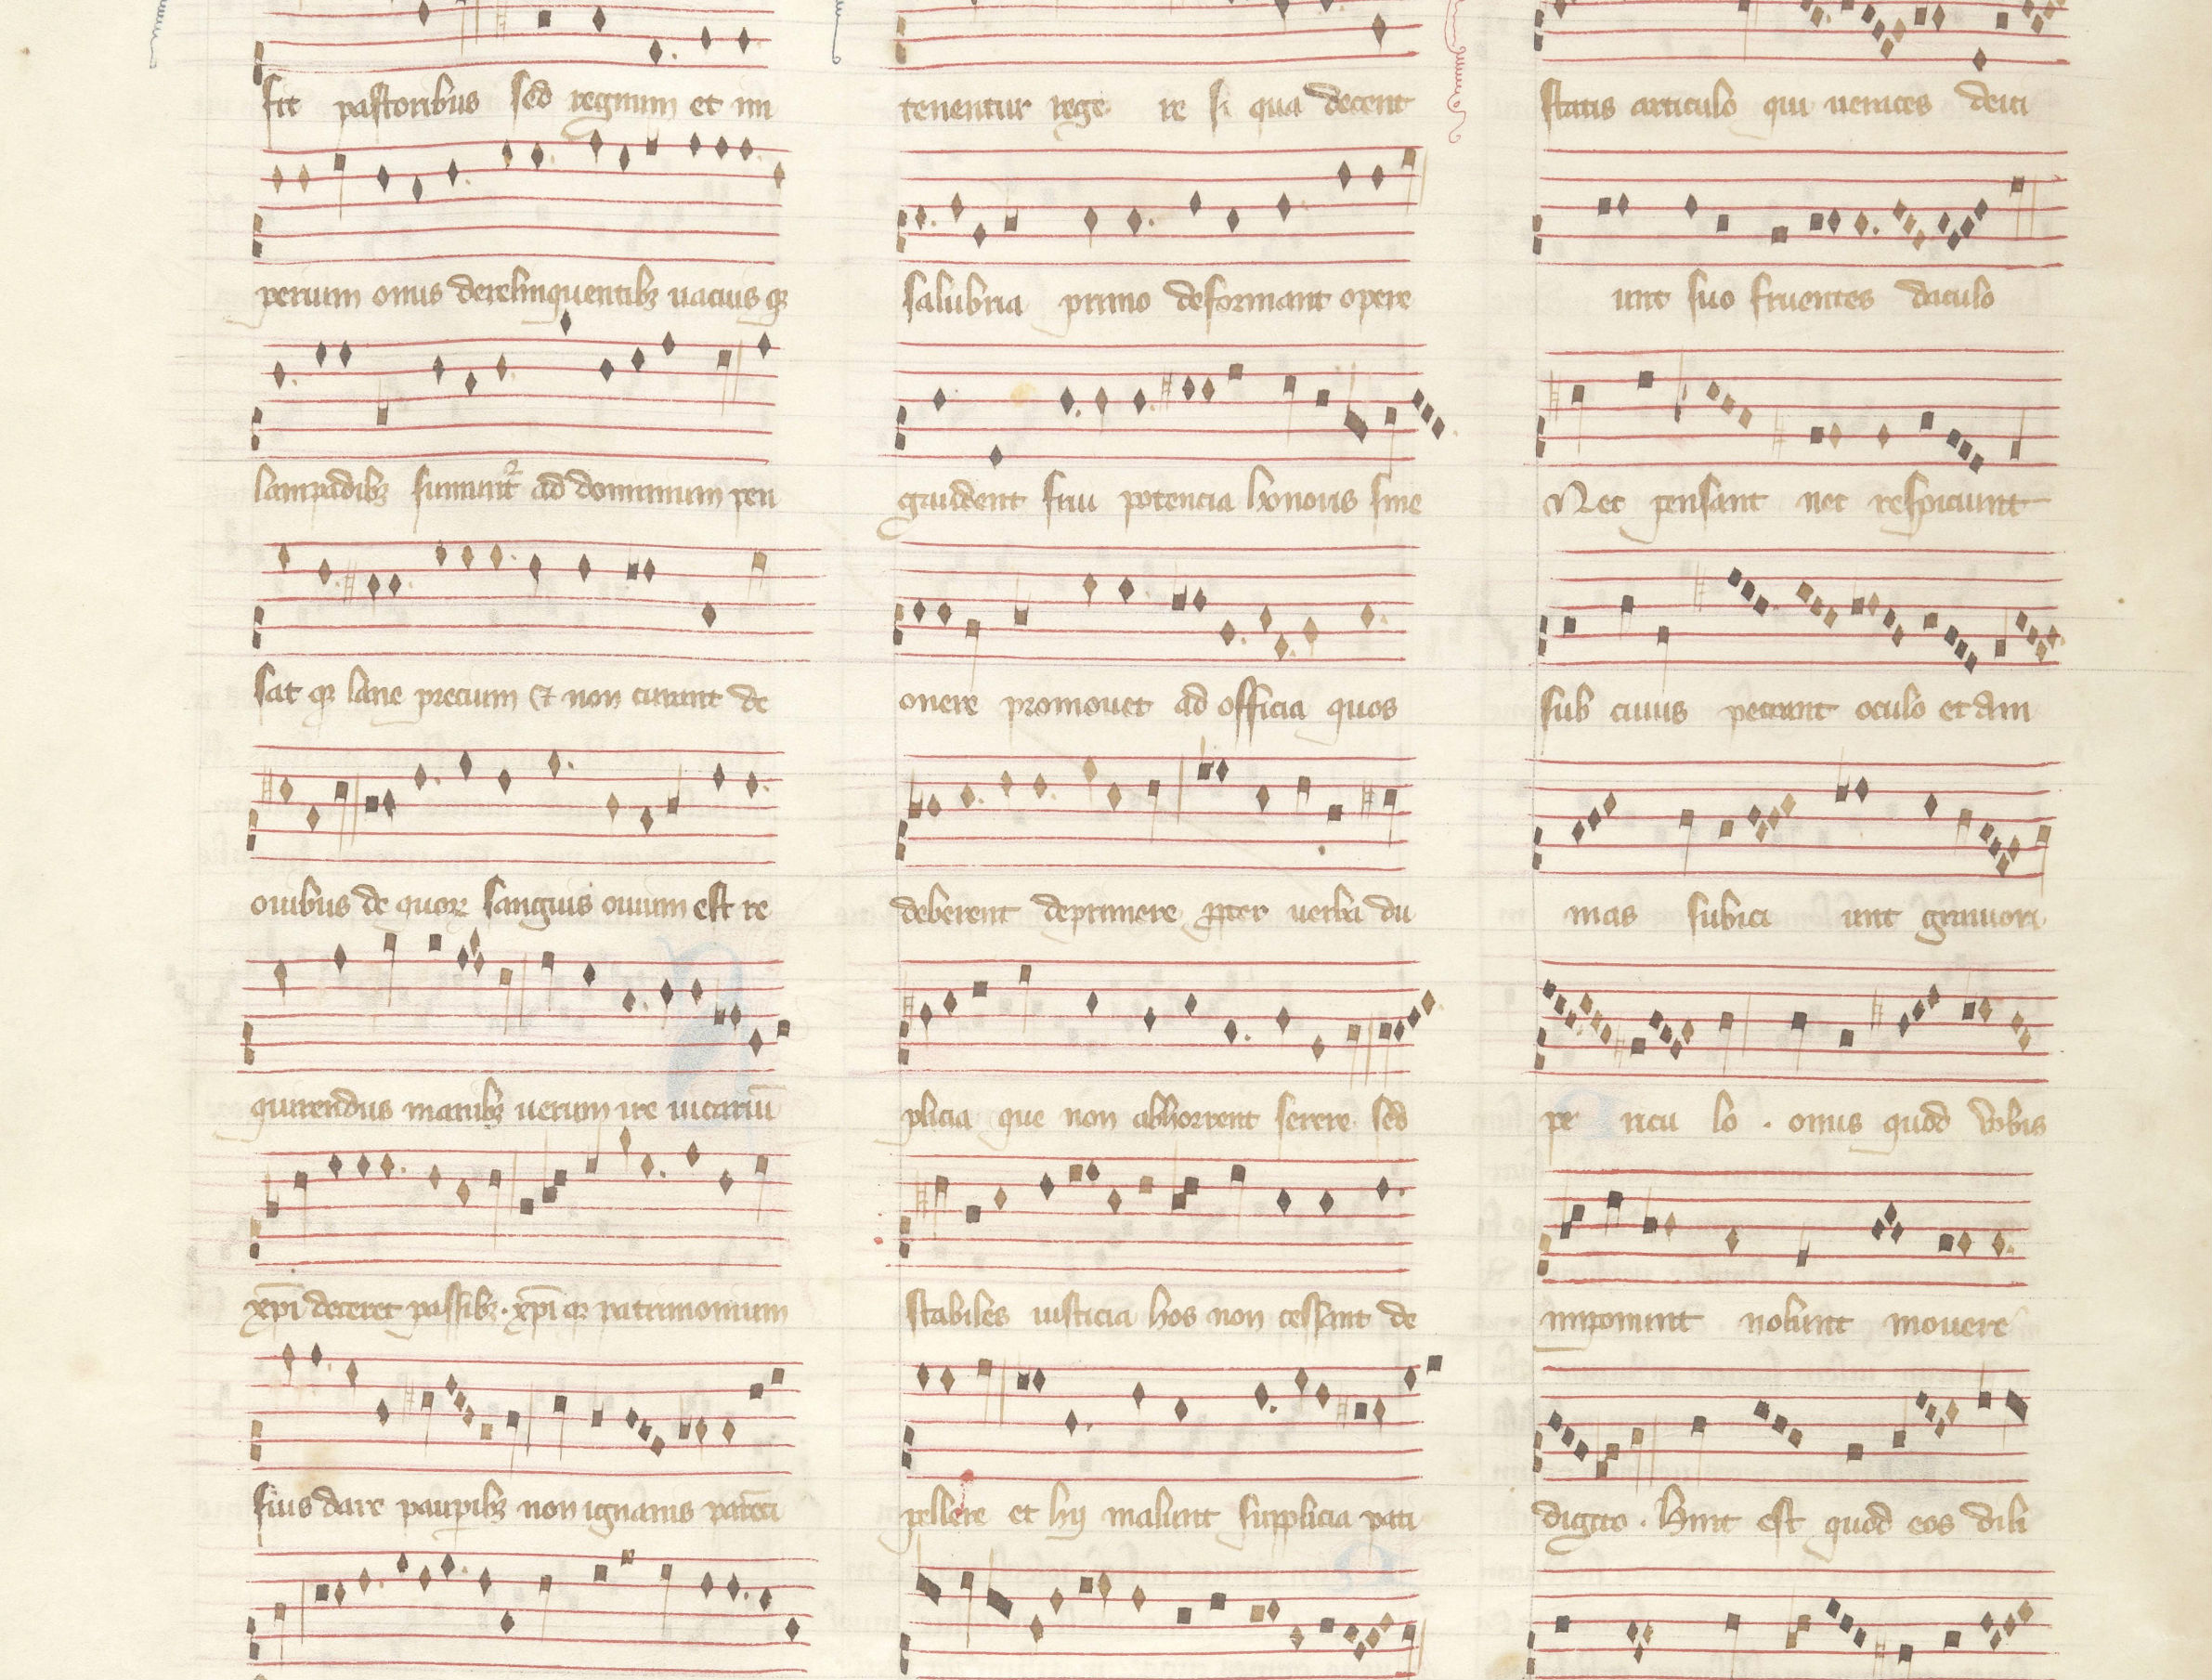 sit pastoribus sed regnum et im
perium onus derelinquentibꝫ uacuus qꝫ
lampadibꝫ ad dominum pen
sat qꝫ lane precium et non curant de
ouibus de quoꝝ sanguis ouium est re
quirendus manibꝫ uerum ire uicariū
xp̄i deceret passibꝫ. xp̄i qꝫ patrimonium
suis dare paupibꝫ non ignauis
tenentur rege re si qua decent
salubria primo deformant opere
gaudent frui potencia honoris sine
onere promouet ad officia quos
deberent deprimere ꝓpter uerba du
plicia que non abhorrent serere sed
stabiles iusticia hos non cessant de
pellere et hij malunt supplicia pati
statis articulo qui uertices deici
unt suo fruentes baculo
Nec pensant nec respiciunt
sub cuius peccant oculo et am
mas subici unt grauiori
pe ricu lo . onus quod uobis
imponunt nolunt mouere
digito . hinc est quod eos dili